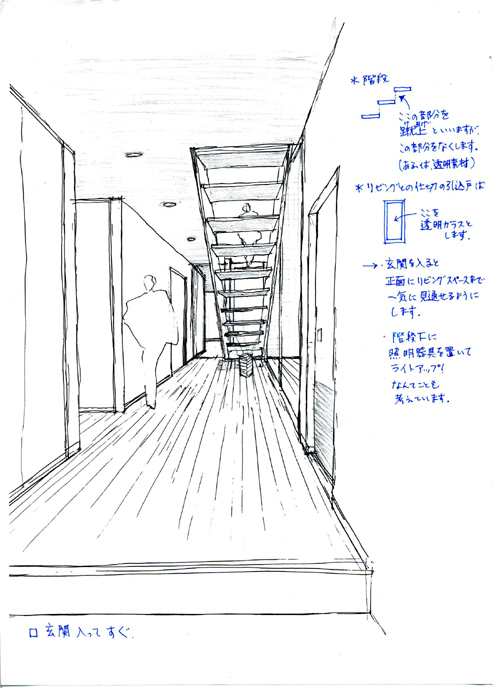 *階段
ここの部分を
けあげ
蹴上 といいますが、
この部分をなくします。
(あるいは、透明素材)
*リビングとの仕切の引込戸は
ここを
透明ガラスと
します。
→・玄関を入ると
正面にリビングスペースまで
一気に見通せるように
します。
・階段下に
照明器具を置いて
ライトアップ!
なんてことも
考えています。
□ 玄関入ってすぐ.